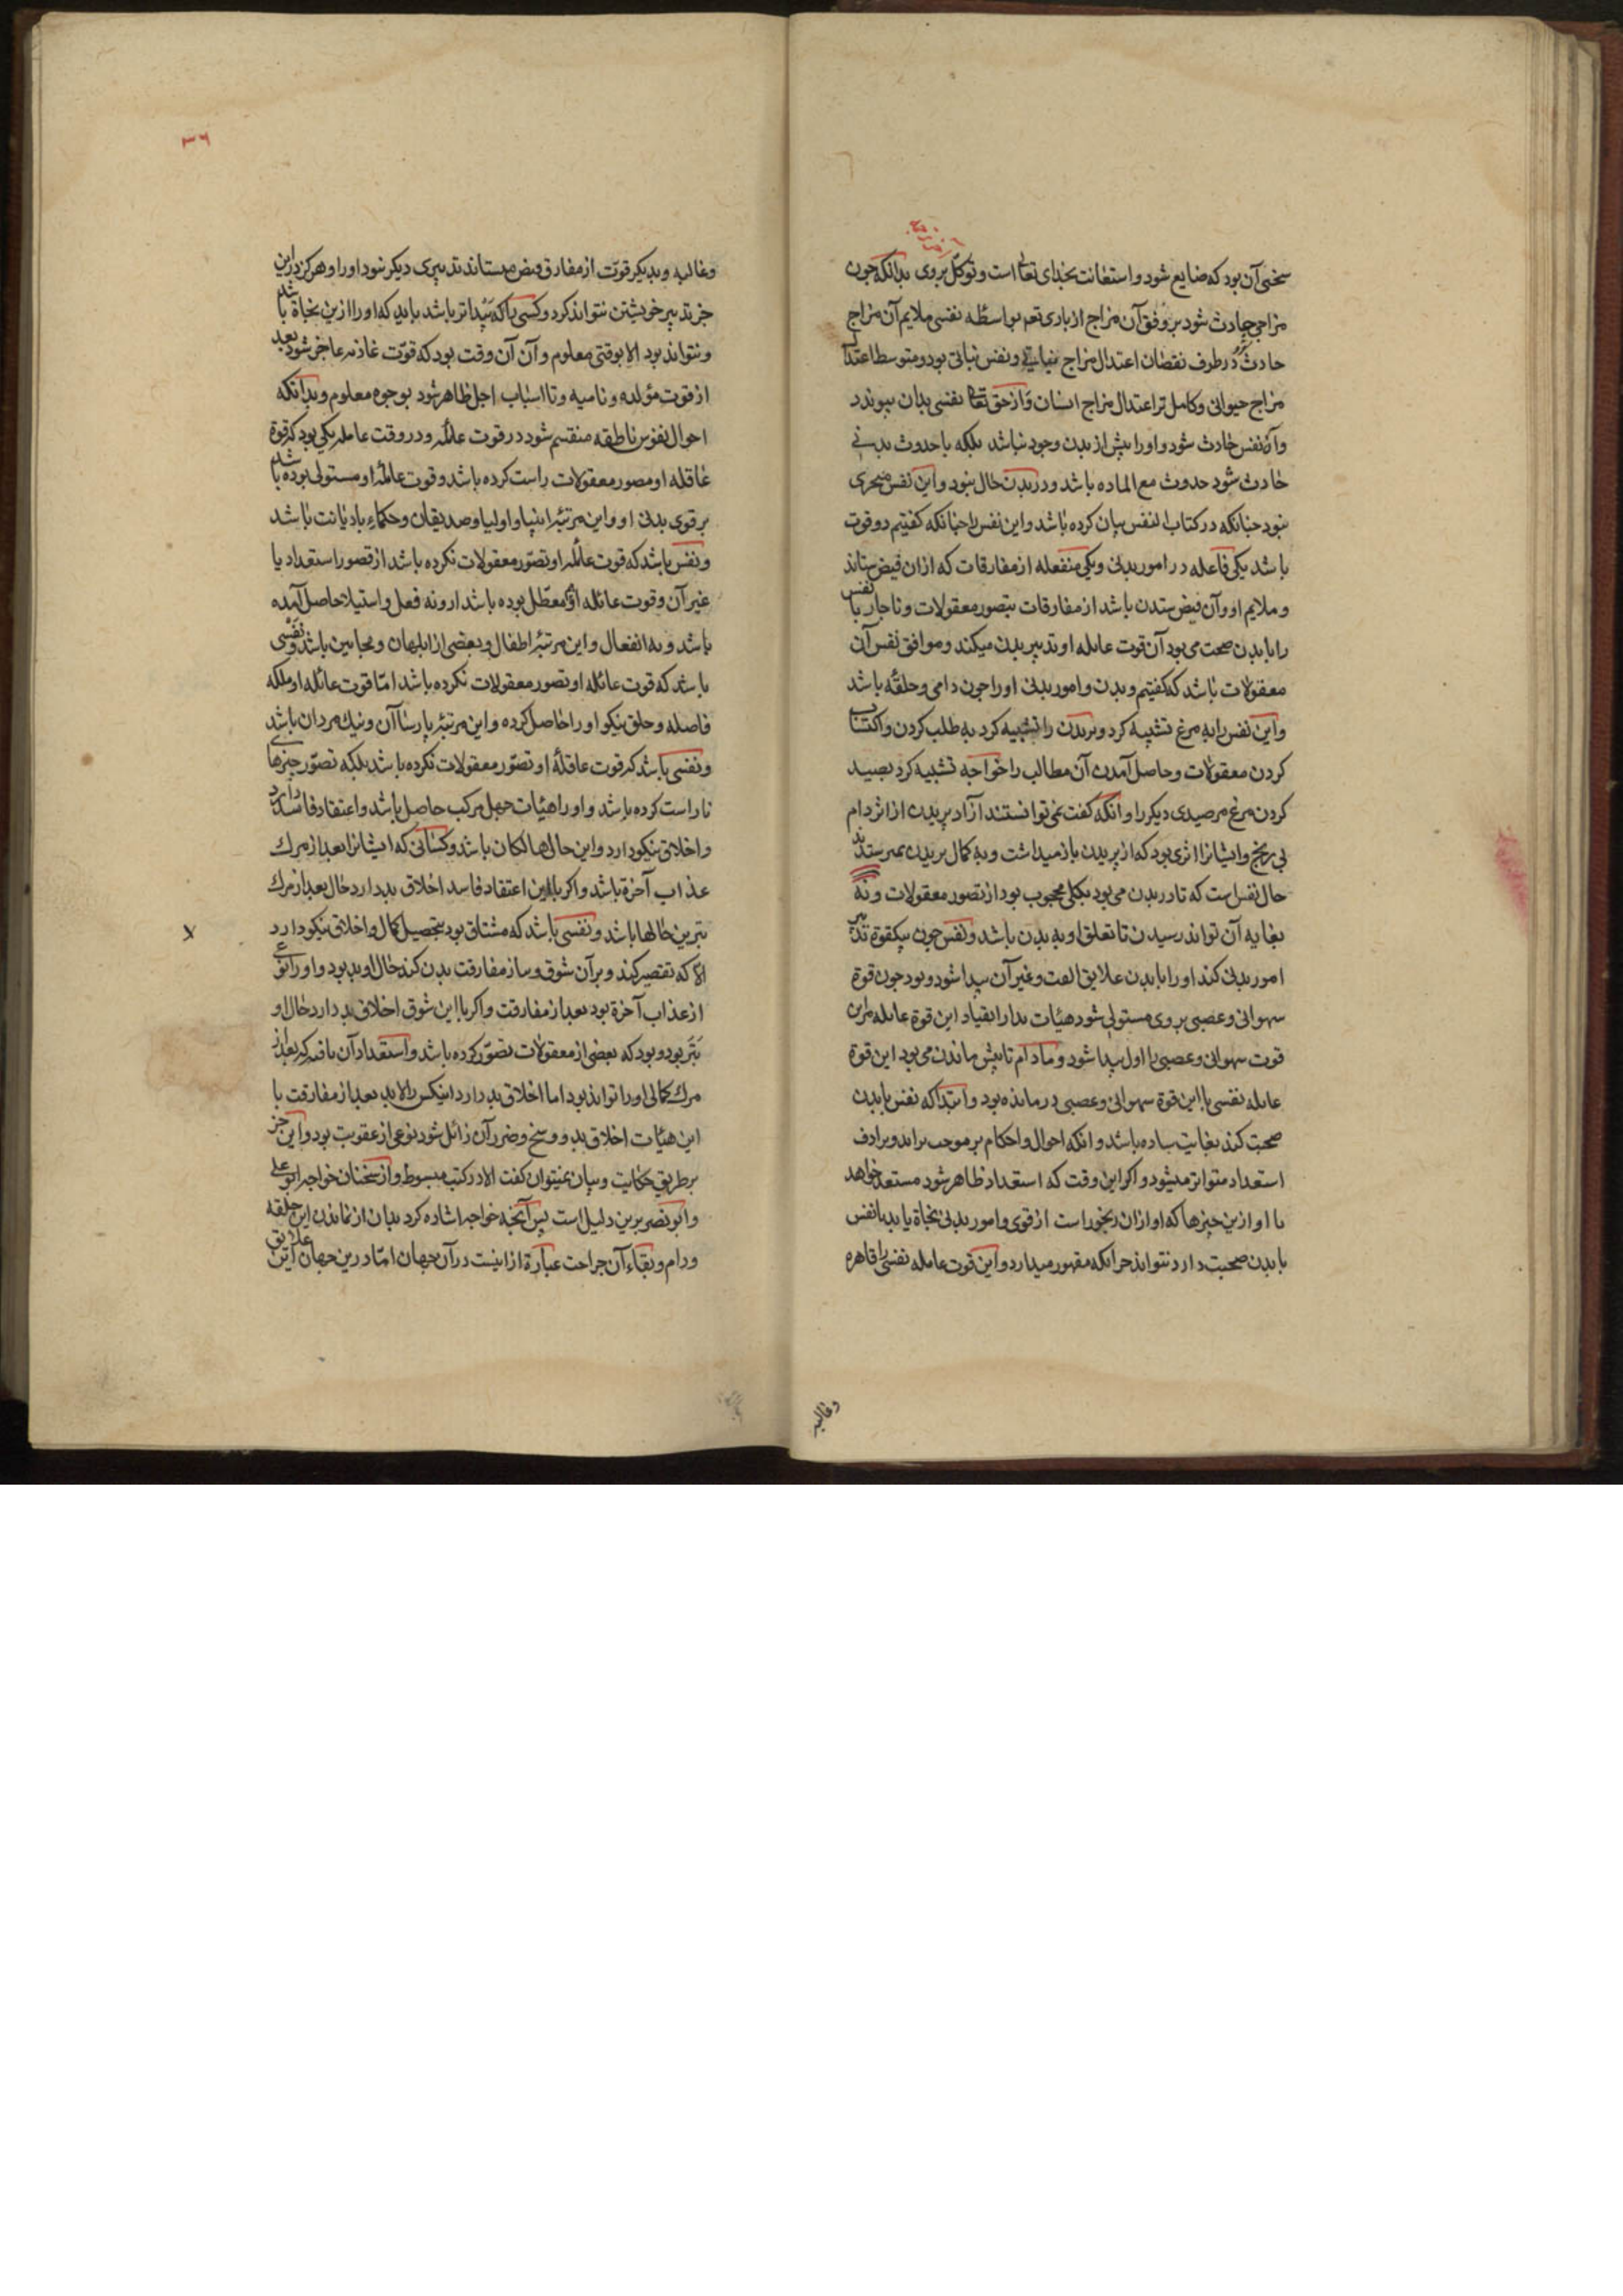 سخنی آن بود که ضایع شود و استعانت بخدای تعالی است و توکل بروی بدانکه چون
مزاجی حادث شود بر وفق آن مزاج از باری تعم بواسطه نفسی ملایم آن مزاج
حادث گردد در طرف نقصان اعتدال مزاج نباتی و نفس نباتی بود و متوسط اعتدال
مزاج حیوانی و کامل تر اعتدال مزاج انسان و از حق تعالی نفسی بدان پیوندد
و آن نفس حادث شود و او را پیش از بدن وجود نباشد بلکه با حدوث بدنی
حادث شود حدوث مع الماده باشد و در بدن حال نبود و این نفس متحری
نبود چنانکه در کتاب النفس بیان کرده باشد و این نفس را چنانکه کفتیم دو قوت
باشد یکی فاعله در امور بدنی و یکی منفعله از مفارقات که ازان فیض ستاند
و ملایم او و آن فیض ستدن باشد از مفارقات بتصور معقولات و ناچار با نفس
را با بدن صحبت می بود آن قوت عامله او تدبیر بدن میکند و موافق نفس آن
معقولات باشد که کفتیم و بدن و امور بدنی او را چون دامی و حلقه باشد
و این نفس را به مرغ تشبیه کرد و بر بدن را تشبیه کرد به طلب کردن و اکتساب
کردن معقولات و حاصل آمدن آن مطالب را خواجه تشبیه کرد بصید
کردن مرغ مر صیدی دیکر را و انکه کفت نمی توانستند آزاد پریدن از اثر دام
بی رنج و ایشانرا اثری بود که از پریدن باز میداشت و به کمال پریدن نمیرسیدند
حال نفس است که تا در بدن می بود بکلی محجوب بود از تصور معقولات و نه
بغایه آن تواند رسیدن تا تعلق او به بدن باشد و نفس چون بیکقوة تدبیر
امور بدنی کند او را با بدن علایق الفت و غیر آن پیدا شود و بود چون قوة
سهوانی و غصبی بر وی مستولی شود هیات بدار انقیاد این قوة عامله مراین
قوت سهوانی و غصبی را اول پیدا شود و مادام تا پیش ماندن می بود این قوة
عامله نفسی با این قوة سهوانی و غصبی در مانده بود و ابتدا که نفس با بدن
صحبت کند بغایت ساده باشد و انکه احوال و احکام بر موجب براند و برادف
استعداد متواتر میشود و اگر این وقت که استعداد ظاهر شود مستعد خواهد
با او ازین چیزها که او ازان رنجور است از قوی و امور بدنی نجاة یابد با نفس
با بدن صحبت دارد نتواند جز آنکه مقهور میدارد و این قوت عامله نفسی را قاهره
وغالبه
٣٦
وغالبه و بدیکر قوت از مفارق فیض میستاند تدبیری دیکر نبود او را و هرکز درین
جز تدبیر خویشتن نتواند کرد و کسی باکه پیداتر باشد باید که او را ازین نجاة باشد
و نتواند بود الا بوقتی معلوم و آن آن وقت بود که قوت غاذیه عاجز شود بعد
از قوت مولده و نامیه و تا اسباب اجل ظاهر شود بوجوه معلوم و بدانکه
احوال نفوس ناطقه منقسم شود در قوت عامله و در وقت عامله یکی بود که قوة
عاقله او مصور معقولات راست کرده باشد و قوت عامله او مستولی بوده باشد
بر قوی بدنی او و این مرتبه انبیا و اولیا و صدیقان و حکماء با دیانت باشد
و نفس باشد که قوت عامله او تصور معقولات نکرده باشد از قصور استعداد یا
غیر آن و قوت عامله او معطل بوده باشد ازو نه فعل و استیلا حاصل آمده
باشد و نه انفعال و این مرتبه اطفال و بعضی از ابلهان و مجانین باشد و نفسی
باشد که قوت عاقله او تصور معقولات نکرده باشد اما قوت عامله او ملکه
فاصله و خلق نیکو او را حاصل کرده و این مرتبه پارساآن و نیک مردان باشد
و نفسی باشد که قوت عاقله او تصور معقولات نکرده باشد بلکه تصور چیزهای
ناراست کرده باشد و او را هیئات جهل مرکب حاصل باشد و اعتقاد فاسد دارد
و اخلاق نیکو دارد و این حال هالکان باشد و کسانی که ایشانرا بعد از مرک
عذاب آخرة باشد و اکر با این اعتقاد فاسد اخلاق بد دارد حال بعد از مرک
بترین حالها باشد و نفسی باشد که مشتاق بود بتحصیل کمال و اخلاق نیکو دارد
الا که تقصیر کند و بر آن شوق و ساز مفارقت بدن کند حال او بد بود و او را نوعی
از عذاب آخرة بود بعد از مفارقت و اکر با این شوق اخلاق بد دارد حال او
بتر بود و بود که بعضی از معقولات تصور کرده باشد و استعداد آن یافته که بعد از
مرک کمالی او را تواند بود اما اخلاق بد دارد اینکس را لابد بعد از مفارقت با
این هیئات اخلاق بد و وسخ و ضرر آن زائل شود نوعی از عقوبت بود و این جز
بر طریق حکایت و بیان نمیتوان کفت الا در کتب مبسوط و از سخنان خواجه ابو علی
و ابو نصر برین دلیل است پس آنچه خواجه اشاره کرد بدان از ماندن این حلقه
و دام و بقاء آن جراحت عبارة ازانیست در آن جهان اما درین جهان این علایق